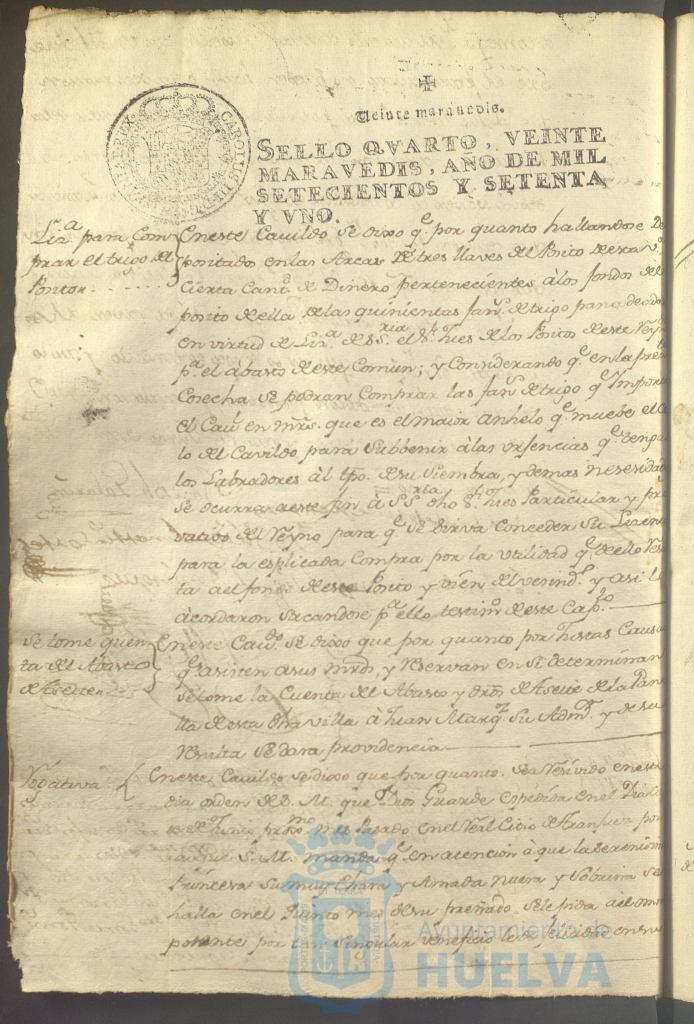 Veinte maravedis.
SELLO QVARTO, VEINTE
MARAVEDIS, AÑO DE MIL
SETECIENTOS Y SETENTA
Y VNO.
CAROLUS III
REX
Liz.ª para Com
prar el trigo del
Posito.
En este Cavildo se dixo q.e por quanto hallandose De
positados en las Arcas de tres llaves del Posito de esta V.ª
Cierta Cant.d de Dinero pertenecientes à los fondos del
posito de ella de las quinientas fan.s de trigo panadeado
en virtud de Liz.ª de S.S.ria el S.r Jues de los Positos de este Reyn
p.ª el abasto de este Comun; y Considerando q.e en la pres
Cosecha se podran Comprar las fan.s de trigo q.e Impor
el Cau en mrs. que es el maior anhelo q.e muebe el
lo del Cavildo para Subbenir à las urgencias q.e tenga
los Labradores àl tpo. de su Siembra, y demas nesesidad
se ocurra a este fin à S.S.ria dho S.r Jues Particular y pri
vativo del Reyno para q.e se sirva conceder su Lizen
para la esplicada Compra por la utilidad q.e de ello Res
ta al fondo de este Posito y vien del vecind.o y asi lo
acordaron sacandose p.ª ello testim.o de este Cap.o
Se tome quen
ta del Abasto
de Aseite
En este Cav.do se dixo que por quanto por Justas Causa
q.e asisten a sus mrds, y Reservan en si determinan
se tome la Cuenta del Abasto y dros de Aseite de la
lla de esta dha villa à Juan Marq.z su Adm.r y de su
Resulta se dara providencia
Rogativa
En este Cavildo se dixo que por quanto se a Resivido en este
dia orden de S. M. que Dios Guarde espedida en el Dia
de Junio proxmo mes pasado en el Real Citio de Aranjuez por
la que S. M. manda q.e en atencion à que la serenisim
Princesa su muy Chara y Amada Nuera y Sobrina se
halla en el Quinto mes de su preñado se le pida al omni
potente por tan singular beneficio le de felicidad en su
Ayuntamiento de
HUELVA